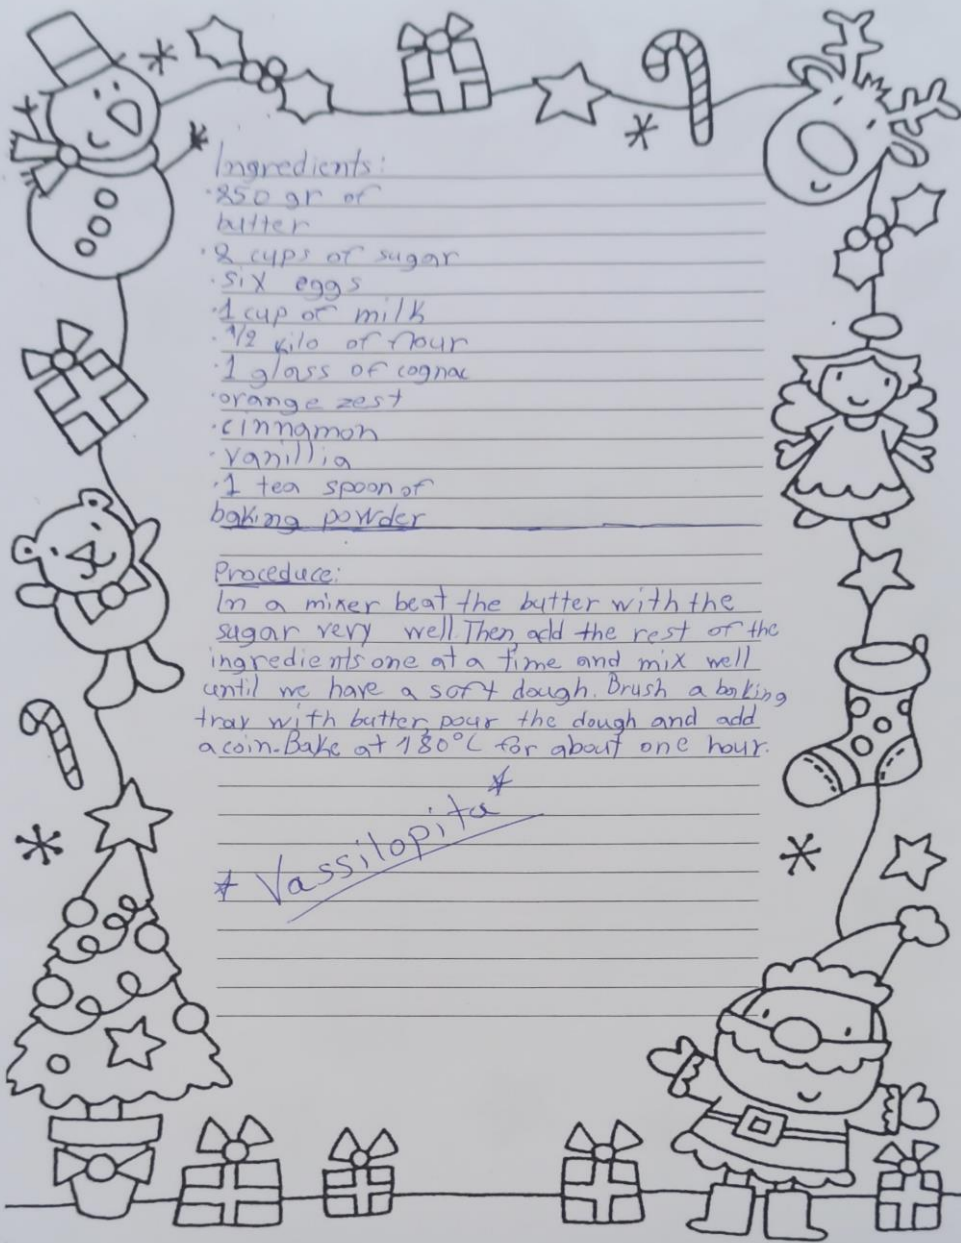 Ingredients:
·250 gr of
butter
·2 cups of sugar
·six eggs
·1 cup of milk
·1/2 kilo of flour
·1 glass of cognac
·orange zest
·cinnamon
·vanillia
·1 tea spoon of
baking powder
Proceduce:
In a mixer beat the butter with the
sugar very well. Then add the rest of the
ingredients one at a time and mix well
until we have a soft dough. Brush a baking
tray with butter, pour the dough and add
a coin. Bake at 180°C for about one hour.
* Vassilopita *